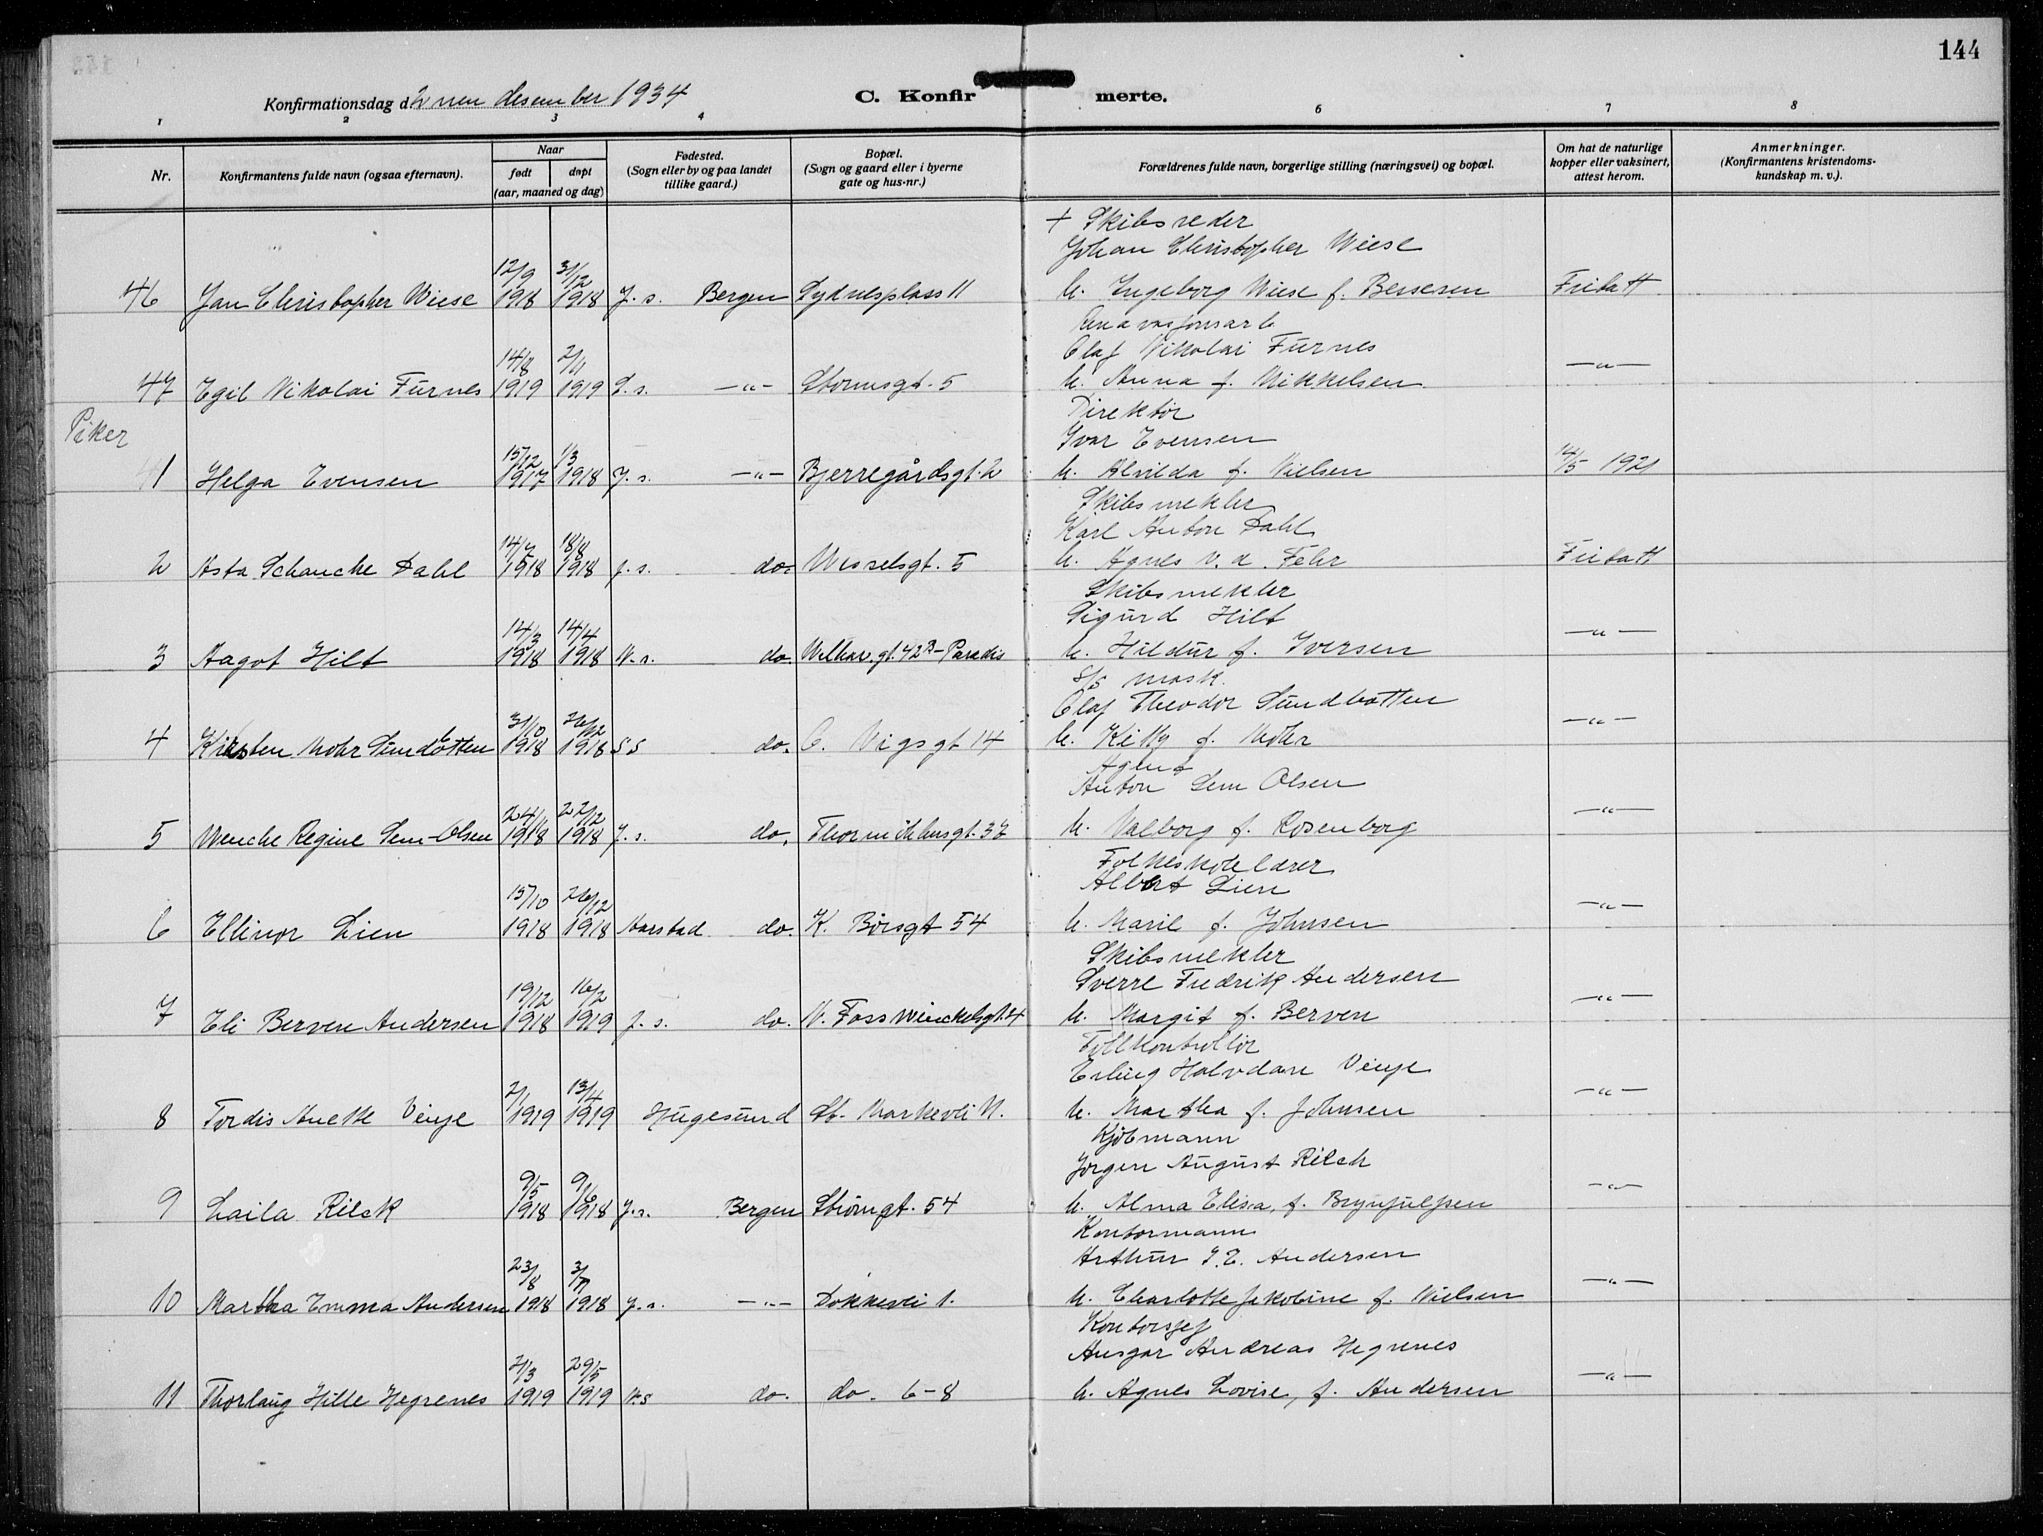 144
Konfirmationsdag d 2nen desember 1934
C. Konfirmerte.
1 2 3 4 6 7 8
Nr.
Konfirmantens fulde navn (ogsaa efternavn).
Naar
født døpt
(aar, maaned og dag)
Fødested.
(Sogn eller by og paa landet
tillike gaard.)
Bopæl.
(Sogn og gaard eller i byerne
gate og hus-nr.)
Forældrenes fulde navn, borgerlige stilling (næringsvei) og bopæl.
Om hat de naturlige
kopper eller vaksinert,
attest herom.
Anmerkninger.
(Konfirmantens kristendoms-
kundskap m. v.).
+ Skibsreder
Johan Christopher Wiese
12/9 31/12
46 Jan Christopher Wiese 1918 1918 J. s. Bergen Sydnesplass 11 h. Ingeborg Wiese f. Bessesen Fritatt
Olaf Nikolai Furnes
14/8 2/11
47 Egil Nikolai Furnes 1919 1919 S. s. —"— Stormsgt. 5 h. Anna f. Mikkelsen —"—
Piker
Direktør
Ivar Evensen
15/12 1/3
1 Helga Evensen 1917 1918 J. s. —"— Bjerregårdsgt. 2 h. Alvilda f. Nielsen 14/5 1921
Skibsmekler
Karl Anton Dahl
14/7 18/8
2 Asta Schanche Dahl 1918 1918 J. s. do. Wesselsgt. 5 h. Agnes v. d. Fehr Fritatt
Skibsmekler
Sigurd Hilt
14/3 14/4
3 Aagot Hilt 1918 1918 N. s. do. Welhav. gt. 42B – Paradis h. Hildur f. Iversen —"—
S/S mask.
Olaf Theodor Sundbotten
31/10 26/12
4 Kirsten Mohr Sundbotten 1918 1918 S S do. O. Vigsgt 14 h. Kitty f. Mohr —"—
Agent
Anton Sem Olsen
24/11 22/12
5 Wenche Regine Sem-Olsen 1918 1918 J. s. do. Thormøhlensgt. 37 h. Valborg f. Rosenborg —"—
Folkeskolelærer
Albert Lien
15/10 26/12
6 Ellinor Lien 1918 1918 Aarstad do. K. Børsgt 54 h. Marie f. Johnsen —"—
Skibsmekler
Sverre Fredrik Andersen
19/12 16/2
7 Eli Berven Andersen 1918 1919 J. s. do. V. Foss Winckelsgt. 4 h. Margit f. Berven —"—
Tollkontrollør
Erling Halvdan Vinje
2/1 13/4
8 Tordis Anette Vinje 1919 1919 Hugesund St. Markevei 11. h. Martha f. Johnsen —"—
Kjøbmann
Jørgen August Rilck
9/5 9/6
9 Laila Rilck 1918 1918 J. s. Bergen Strømgt. 54 h. Alma Elisa, f. Brynjulfsen —"—
Kontormann
Arthur I. E. Andersen
23/8 3/11
10 Martha Emma Andersen 1918 1918 J. s. —"— Dokkevei 1. h. Charlotte Jakobine f. Nielsen —"—
Kontorsjef
Ansgar Andreas Hegrenes
21/3 29/5
11 Thorlaug Hille Hegrenes 1919 1919 N. s do. do. 6–8 h. Agnes Lovise, f. Andersen —"—